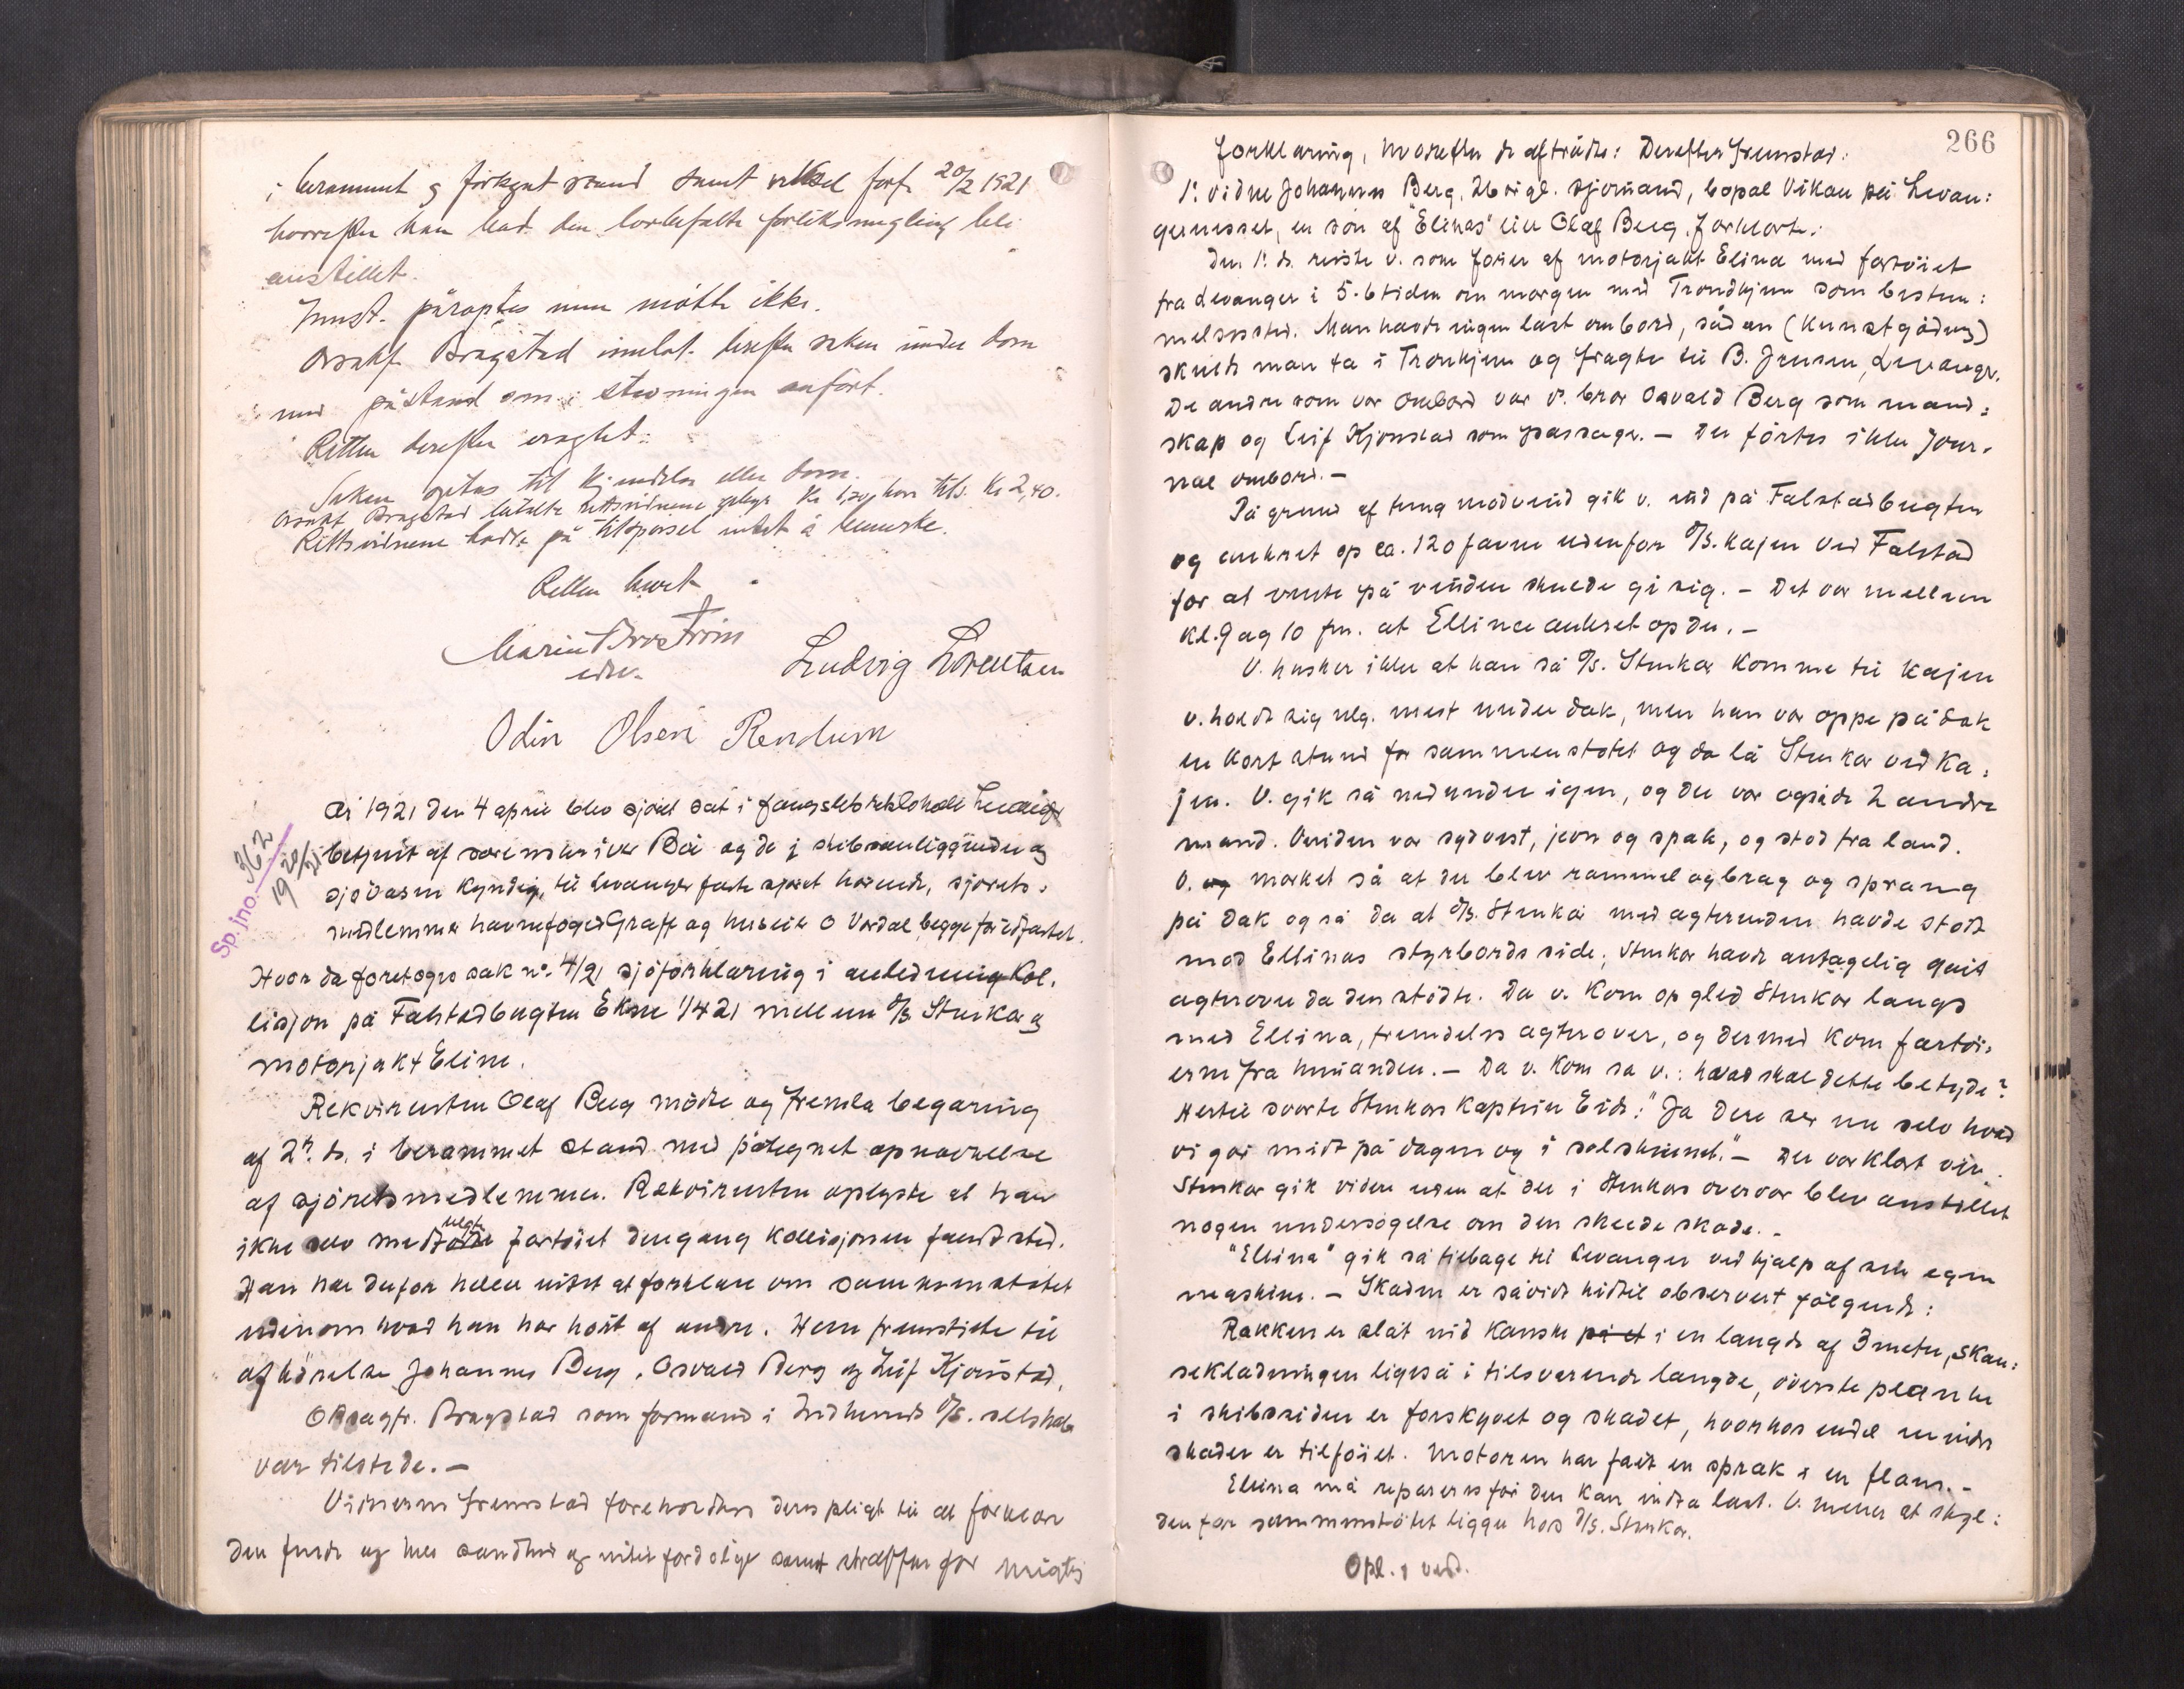 i berammet og forkynt stand samt veksel forf. 20/2 1921
hvorefter han bad den lovbefalte forliksmegling bli
anstillet.
Innst. påroptes men møtte ikke.
Orsakf. Bragstad innlot derefter saken under dom
med påstand som i stevningen anført.
Retten derefter eragtet:
Saken optas til kjendelse eller dom.
Orsakf. Bragstad betalte rettsvidnene gebyr kr 1,20 hver tils. kr 2,40.
Rettsvidnene hadde på tilspørsel intet å bemerke.
Retten hevet
edv.
Ludvig Lorentsen
Odin Olsen Rendum
Sp.jno. 362
19 20/21
År 1921 den 4 april blev sjøret sat i fængselsretslokale Levanger
betjent af sorenskriver Bøe og de i skibsanliggender og
sjøvæsen kyndige, til Levanger faste sjøret hørende, sjørets-
medlemmer havnefoged Graff og huseier O Vordal begge før edfæstet.
Hvor da foretoges sak no. 4/21 sjøforklaring i anledning kol-
lisjon på Falstadbugten Ekne 1/4 21 mellem D/S Steinkær og
motorjakt Eline.
Rekvirenten Olaf Berg mødte og fremla begæring
af 2n. ds. i berammet stand med påtegnet opnævnelse
af sjøretsmedlemmer. Rekvirenten oplyste at han
ikke selv medfølgte fartøiet dengang kollisjonen fandt sted.
Han har derfor heller intet at forklare om sammenstøtet
udenom hvad han har hørt af andre. Hem fremstilte til
afhørelse Johannes Berg, Osvald Berg og Leif Kjønstad.
O.R.sagfr. Bragstad som formand i Indherreds D/S. selskab
var tilstede.—
Vidnerne fremstod foreholdtes deres pligt til at forklare
den fulde og hele sandhed og intet fordølge samt straffen for urigtig
266
forklaring, hvorefter de aftrådte: Derefter fremstod:
1. vidne Johannes Berg, 26 år gl. sjømand, bopæl Vikan på Levan:
gernesset, en søn af "Elinas" eier Olaf Berg. forklarte:
Den 1. ds. reiste v. som fører af motorjakt Elina med fartøiet
fra Levanger i 5-6 tiden om morgen med Trondhjem som bestem:
melsessted. Man havde ingen last ombord, sådan (kunstgødning)
skulde man ta i Tronhjem og fragte til B. Jensen, Levanger.
De andre som var ombord var v. bror Osvald Berg som mand-
skap og Leif Kjønstad som passager.— Der førtes ikke jour-
nal ombord.—
På grund af tung modvind gik v. ind på Falstadbugten
og ankret op ca. 120 favne udenfor D/S. kajen ved Falstad
for at vente på vinden skulde gi sig.— Det var mellem
kl. 9 og 10 fm. at Ellina ankret op der.—
V. husker ikke at han så D/S. Steinkær komme til kajen
v. holdt sig nlg. mest under dæk, men han var oppe på dæk
en kort stund før sammenstøtet og da lå Steinkær ved ka-
jen. V. gik så nedunder igen, og der var også de 2 andre
mand. Vinden var sydvest, jevn og spak, og stod fra land.
V. og mærket så at der blev rammel og brag og sprang
på dæk og så da at D/S. Steinkær med agterenden havde stødt
mod Ellinas styrbords side; Steinkær havde antagelig gåt
agterover da den stødte. Da v. kom op gled Steinkær langs
med Ellina, fremdeles agterover, og dermed kom fartøi-
erne fra hinanden.— Da v. kom sa v.: hvad skal dette betyde?
Hertil svarte Steinkærs kaptein Eid: "Ja Dere ser nu selv hvad
vi gør midt på dagen og i solskinnet."— Der var klart vir.
Steinkær gik videre uden at der i Steinkærs overvær blev anstillet
nogen undersøgelse om den skeede skade.—
"Ellina" gik så tilbage til Levanger ved hjælp af sin egen
maskine.— Skaden er såvidt hidtil observert følgende:
Rækken er slåt ned kanske på et i en længde af 3 meter, skan:
seklædningen ligeså i tilsvarende længde, øverste planke
i skibssiden er forskyvet og skadet, hvorhos endel mindre
skader er tilføiet. Motoren har fåt en spræk i en flans.—
Ellina må repareres før den kan indta last. V. mener at skyl:
den for sammenstøtet ligger hos D/S. Steinkær.
Opl. & ved.